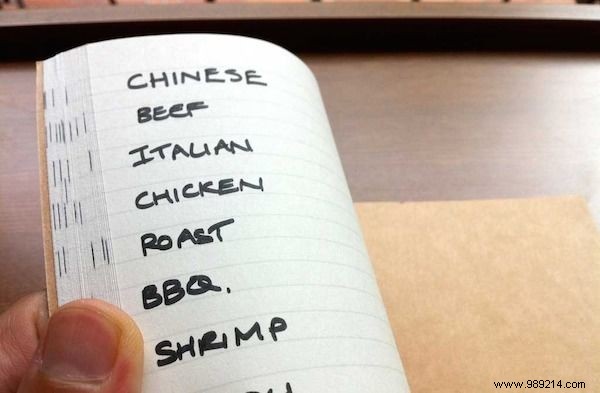 CHINESE
BEEF
ITALIAN
CHICKEN
ROAST
BBQ.
SHRIMP
www.989214.com